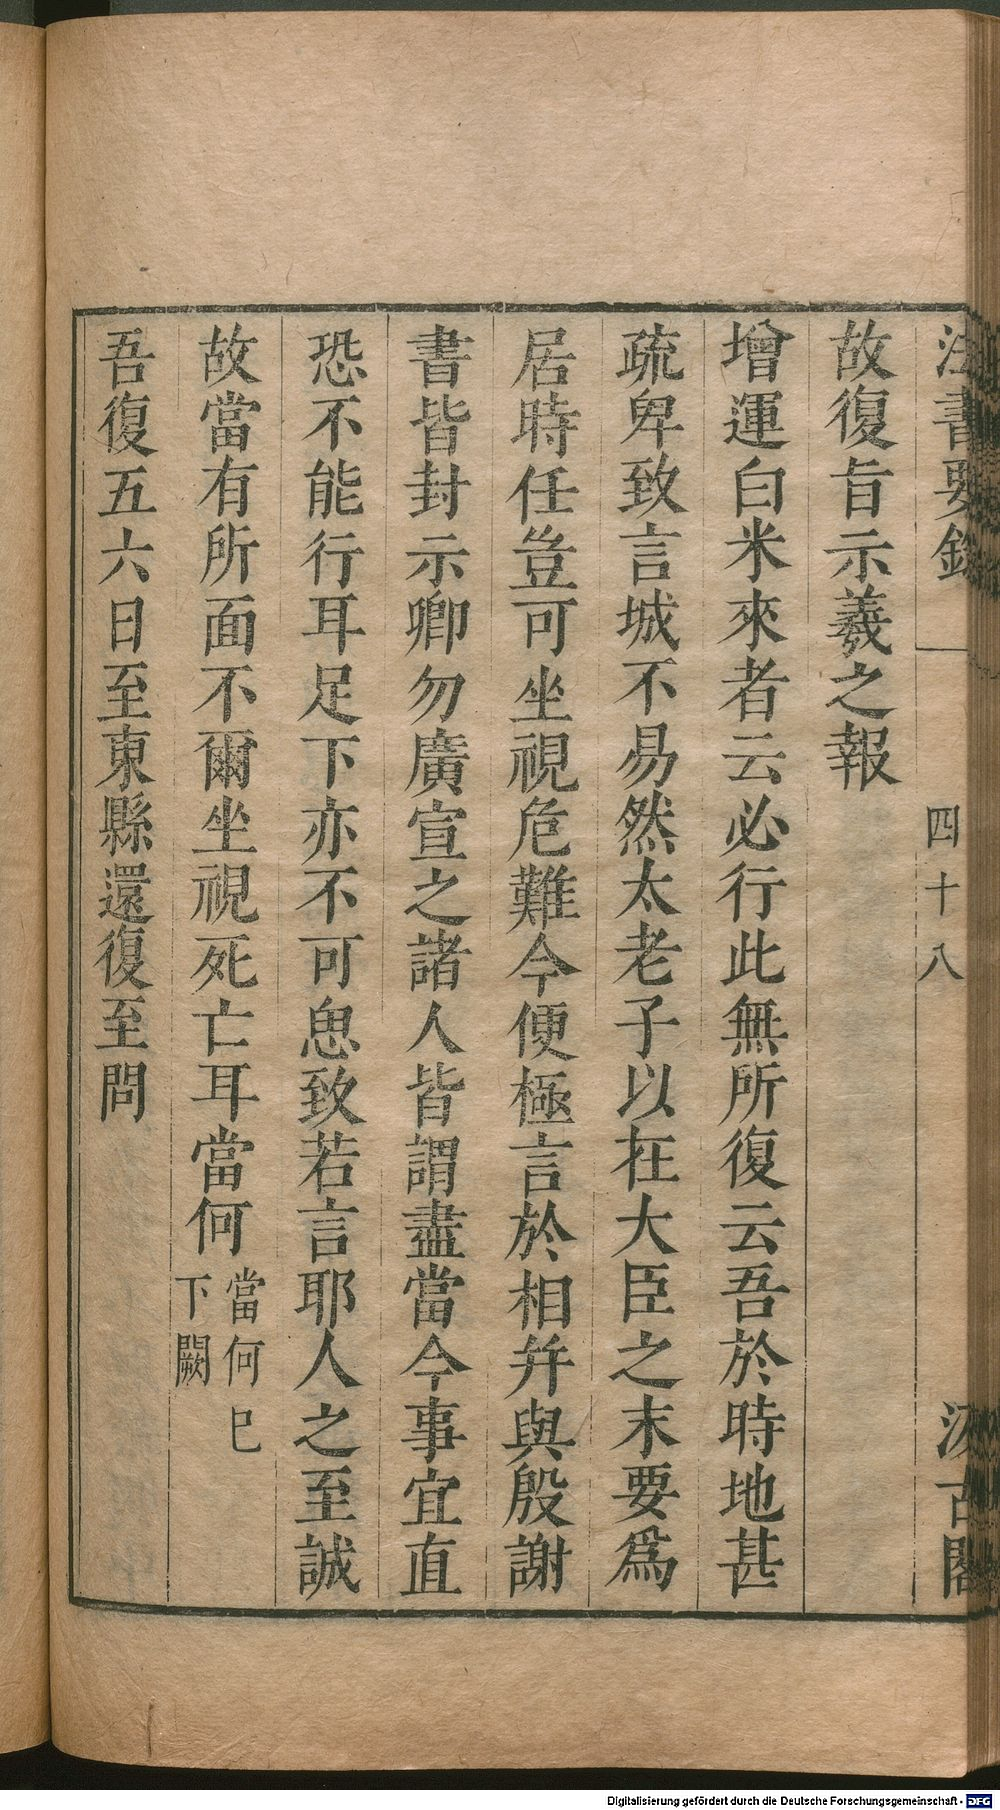 法書要錄 四十八 汲古閣
故復旨示羲之報
增運白米來者云必行此無所復云吾於時地甚
疏卑致言城不易然太老子以在大臣之末要爲
居時任豈可坐視危難今便極言於相幷與殷謝
書皆封示卿勿廣宣之諸人皆謂盡當今事宜直
恐不能行耳足下亦不可思致若言耶人之至誠
故當有所面不爾坐視死亡耳當何
當何已
下闕
吾復五六日至東縣還復至問
Digitalisierung gefördert durch die Deutsche Forschungsgemeinschaft - DFG